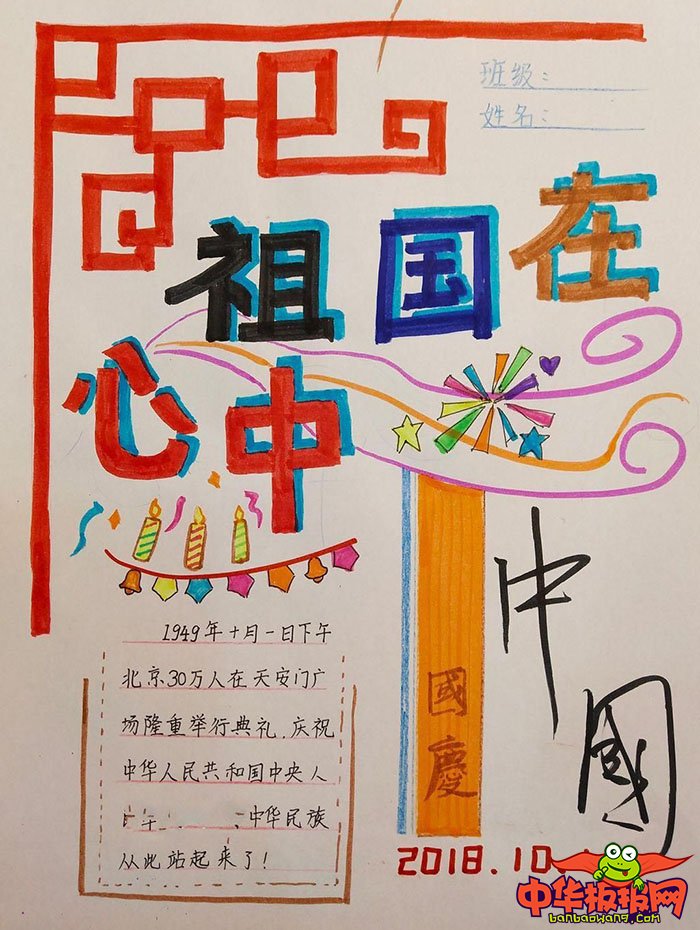 班级：
姓名：
祖国在
心中
1949年十月一日下午
北京30万人在天安门广
场隆重举行典礼.庆祝
中华人民共和国中央人
中华民族
从此站起来了!
國慶
中國
2018.10.
中华板报网
banbaowang.com